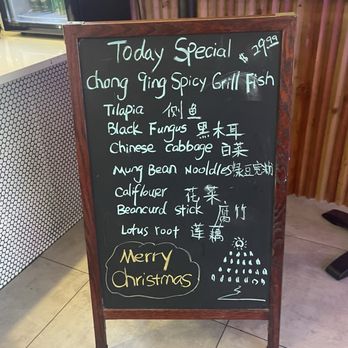 Today Special $29.99
Chong Qing Spicy Grill Fish
Tilapia 侧鱼
Black Fungus 黑木耳
Chinese Cabbage 白菜
Mung Bean Nooldles 绿豆宽粉
Califlower 花菜
Beancurd stick 腐竹
Lotus root 莲藕
Merry
Christmas